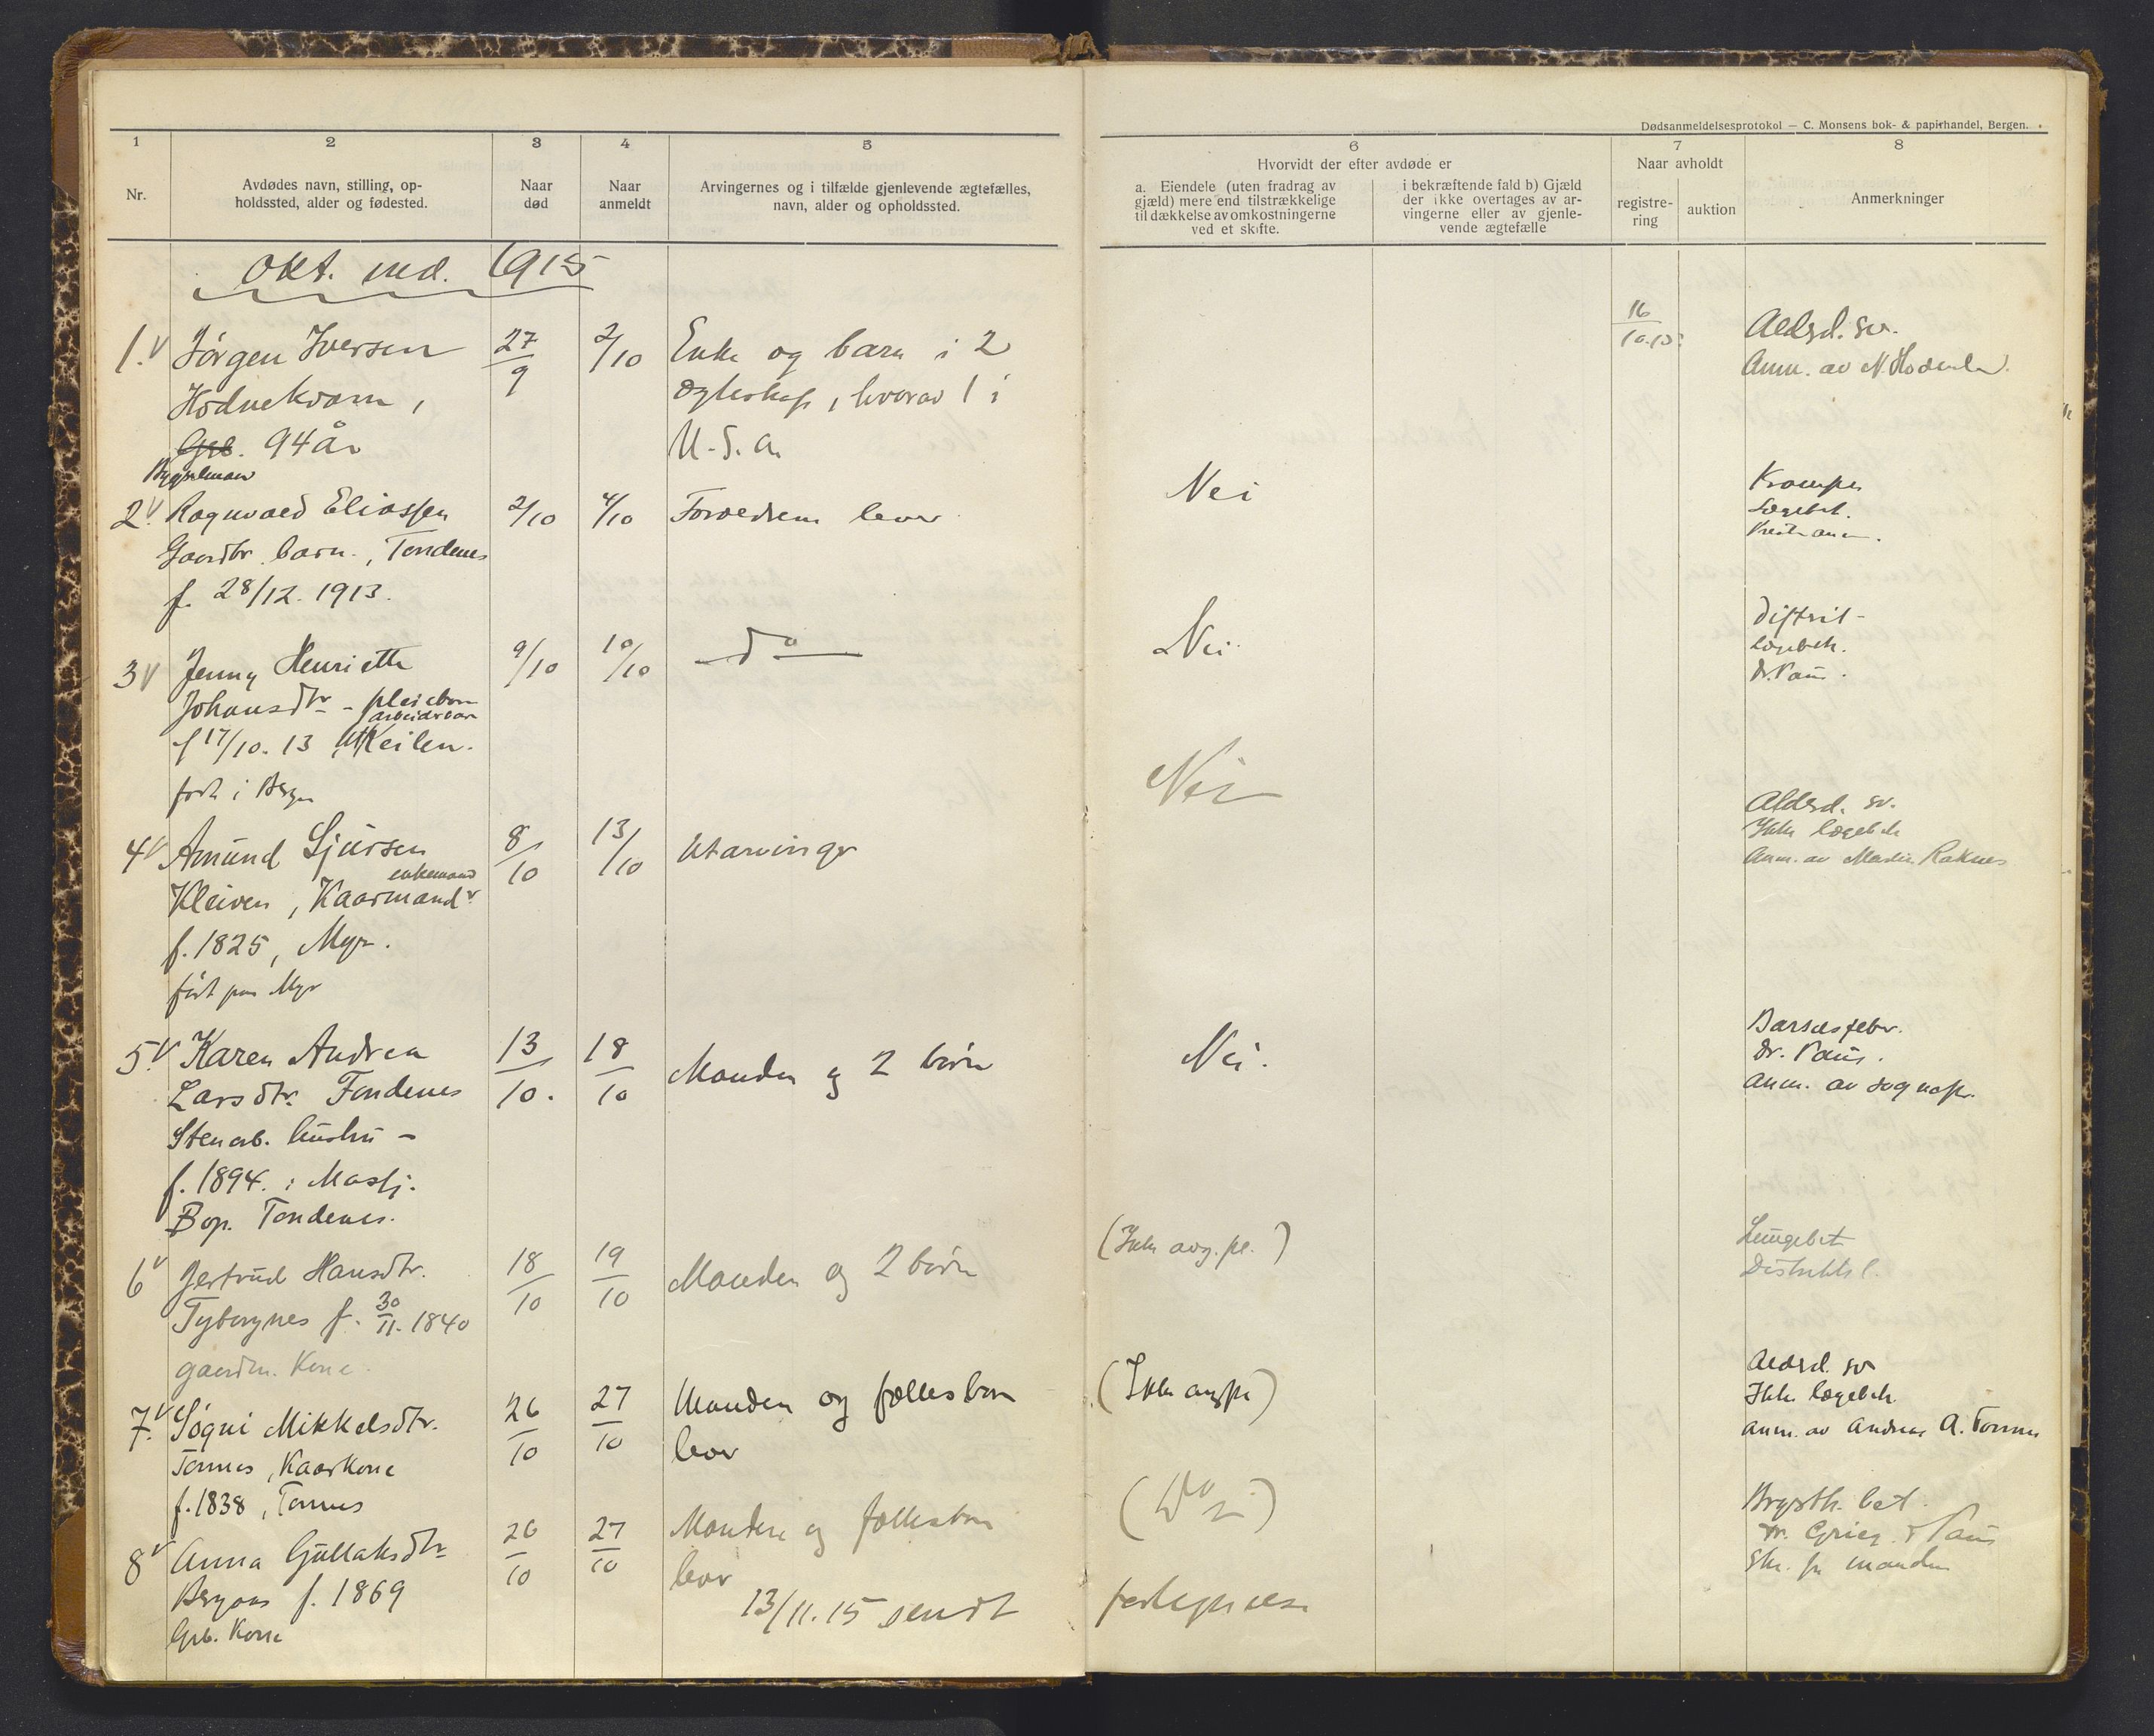 Dødsanmeldelsesprotokol — C. Monsens bok- & papirhandel, Bergen.
1 2 3 4 5 6 7 8
Nr.
Avdødes navn, stilling, op-
holdssted, alder og fødested.
Naar
død
Naar
anmeldt
Arvingernes og i tilfælde gjenlevende ægtefælles,
navn, alder og opholdssted.
Hvorvidt der efter avdøde er
a. Eiendele (uten fradrag av
gjæld) mere end tilstrækkelige
til dækkelse av omkostningerne
ved et skifte.
i bekræftende fald b) Gjæld
der ikke overtages av ar-
vingerne eller av gjenle-
vende ægtefælle
Naar avholdt
registre-
ring
auktion
Anmerkninger
Okt. md. 1915
1. Jørgen Iversen 27/9 2/10 Enke og barn i 2 16/10.15 Aldsd. sv.
Hodnekvam, ægteskap, hvorav 1 i Anm. av N.
94 år U.S.A.
Bygselmand
2. Ragnvald Eliassen 2/10 4/10 Forældrene lever Nei Krampe
Gaardbr. barn., Tondenes Lægebeh.
f. 28/12. 1913.
3 Jenny Henriette 9/10 10/10 do Nei Distrikt-
Johansdtr - pleiebarn lægebeh.
arbeiderbarn dr. Paus.
f 17/10. 13
født i Bergen
4 Amund Sjursen 8/10 13/10 Utarvinger Nei Aldsd. sv.
enkemand Ikke lægebeh
Kleiven, Kaarmand Anm. av Martin Raknes
f. 1825, Myr.
født paa Myr
5. Karen Andrea 13/10. 18/10 Manden og 2 børn Nei. Barselsfeber.
Larsdtr. Tondenes dr. Paus.
Stenarb. hustru - Anm. av sognepr.
f. 1894. i Masfj.
Bop. Tondenes.
6 Jertrud Hansdtr. 18/10 19/10 Manden og 2 børn (Ikke avg.pl.) Lungebet
f. 30/11. 1840 Distriktsl.
gaardm. Kone.
7. Søgni Mikkelsdtr. 26/10 27/10 Manden og fællesbarn (Ikke avgpl) Aldsd. sv
Tonnes, Kaarkone lever Ikke lægebeh.
f. 1838, Tonnes Anm. av Andreas A. Tonnes
8 Anna Gullaksdtr 26/10 27/10 Manden og fællesbarn Brysth. bet.
f. 1869 lever dr. Grieg & Paus
Grb. Kone 13/11. 15 sendt manden